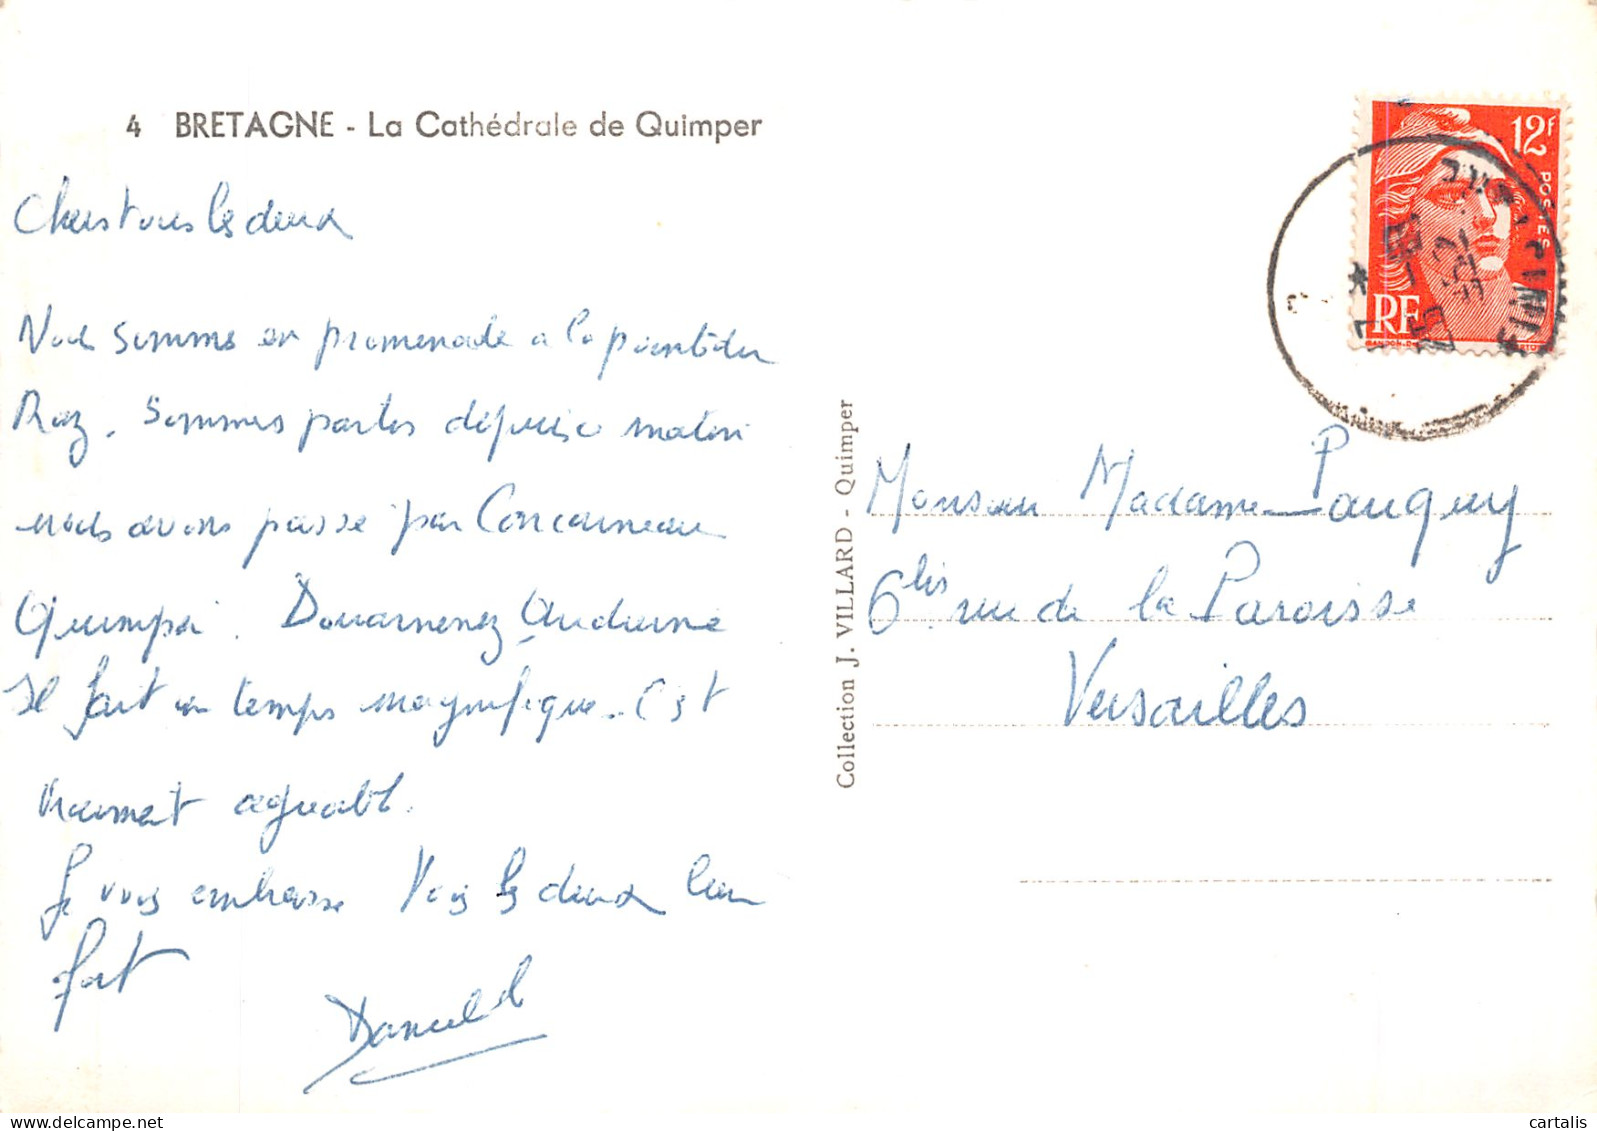 4 BRETAGNE - La Cathédrale de Quimper
Chers tous les deux
Nous sommes en promenade a la pointe du
Raz. Sommes parties depuis ce matin
nous avons passe par Concarneau
Quimper. Douarnenez Audierne
Il fait un temps magnifique. C'est
vraiment agreable.
Je vous embrasse Vous les deux bien
fort
Collection J. VILLARD - Quimper
12f
POSTES
RF
Monsieur Madame Pauquy
6bis rue de la Paroisse
Versailles
cartalis